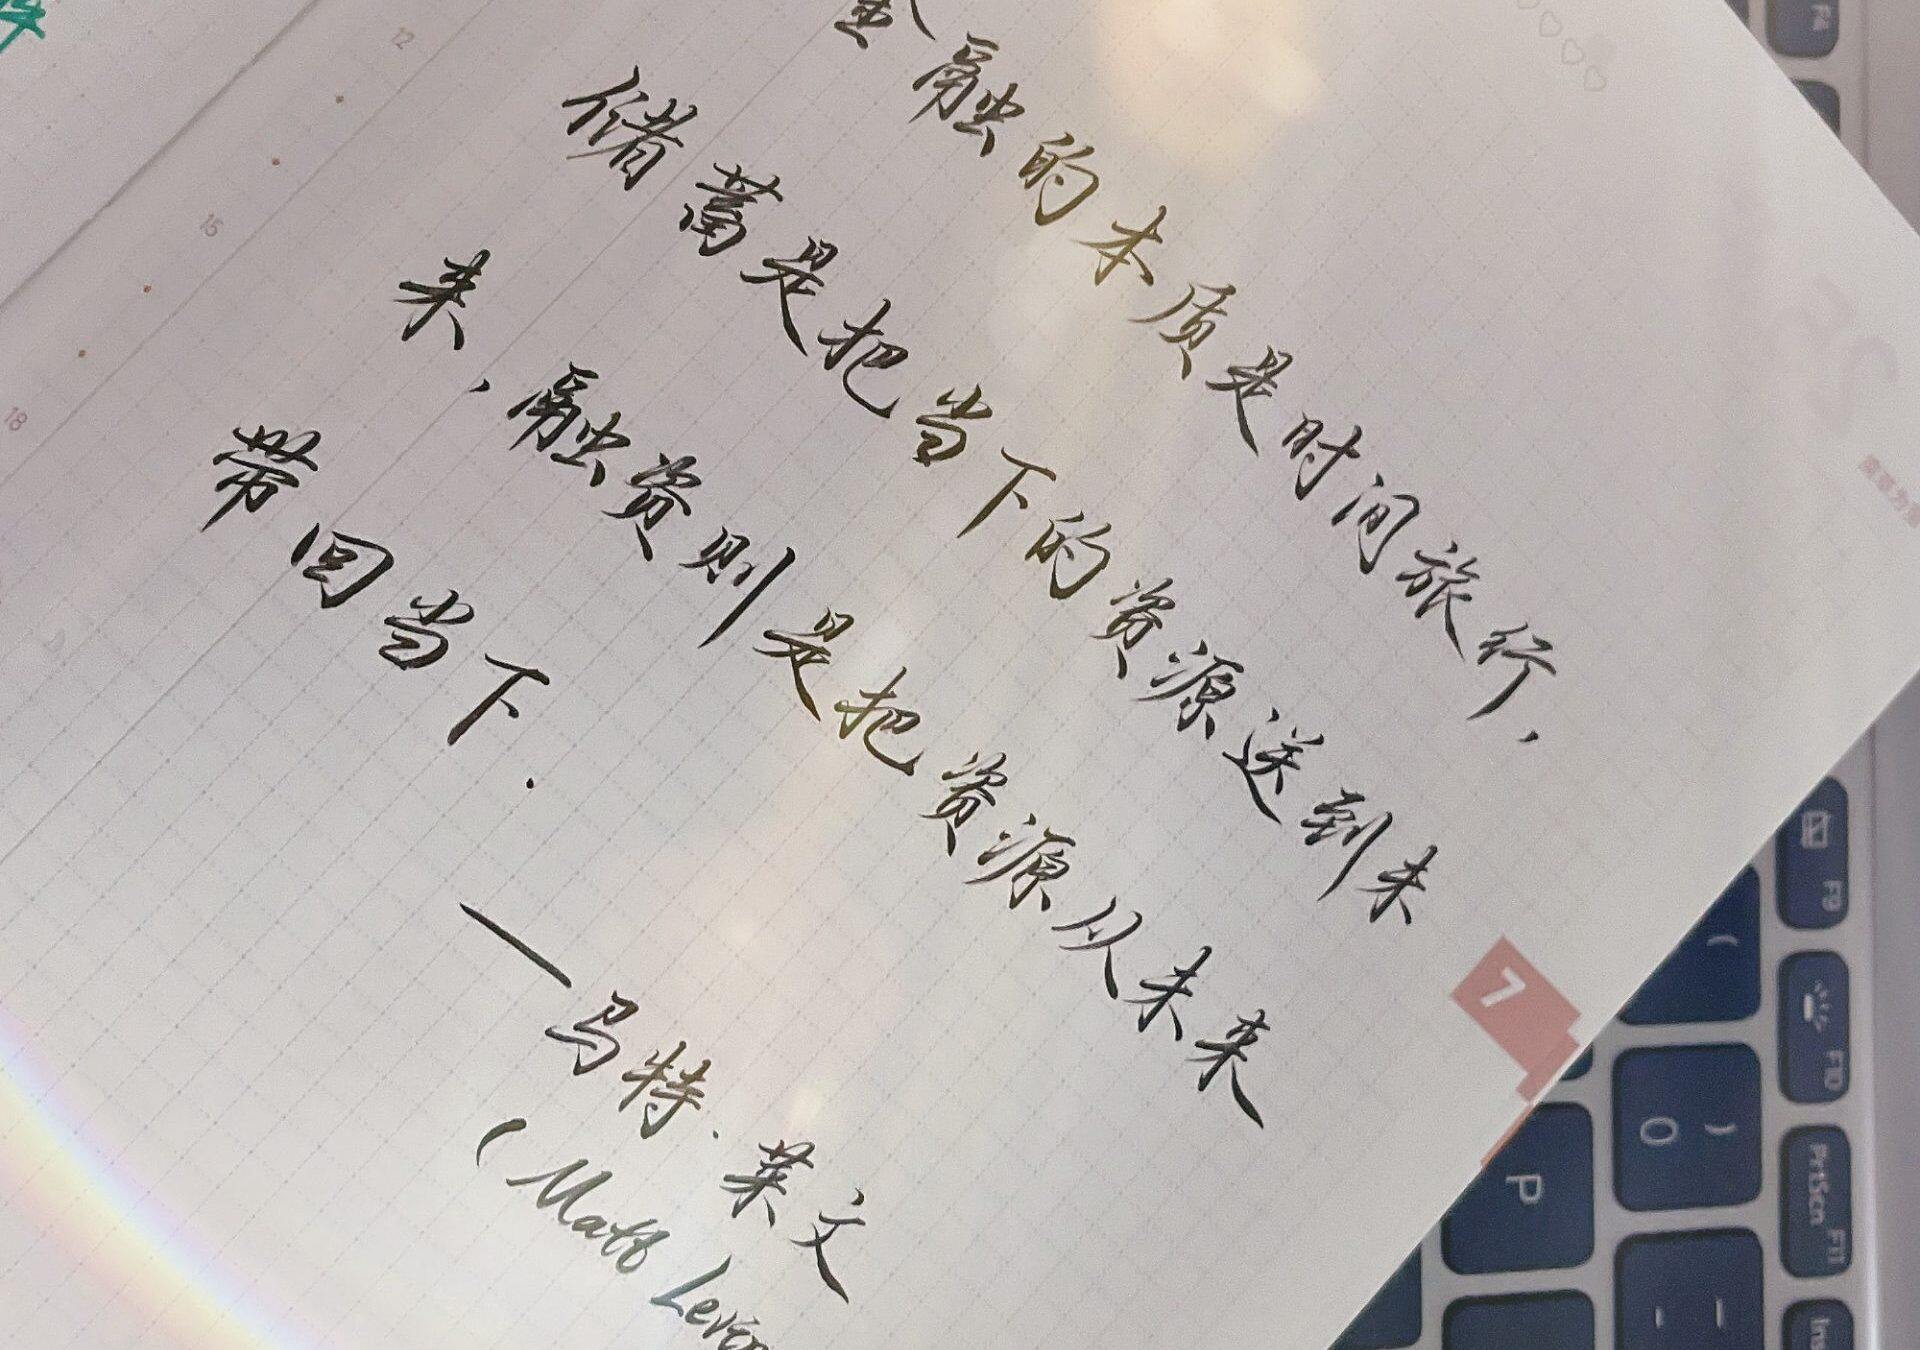 金融的本质是时间旅行，
储蓄是把当下的资源送到未
来，融资则是把资源从未来
带回当下.
—马特·莱文
(Matt Levin
12
15
18
7
F4
F9
F10
PrtScn F11
Ins
(
) 0
P